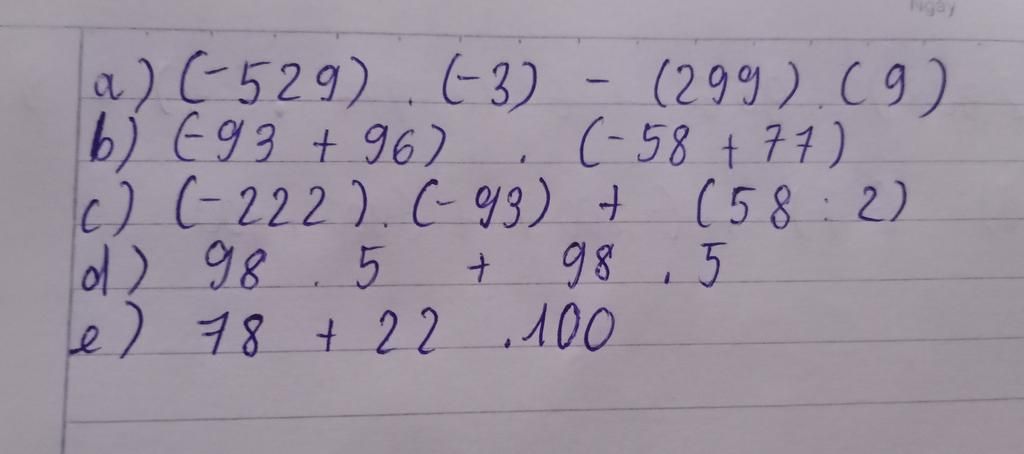 Ngày
a) (-529) . (-3) - (299) . (9)
b) (-93 + 96) . (-58 + 77)
c) (-222) . (-93) + (58 : 2)
d) 98 . 5 + 98 . 5
e) 78 + 22 . 100